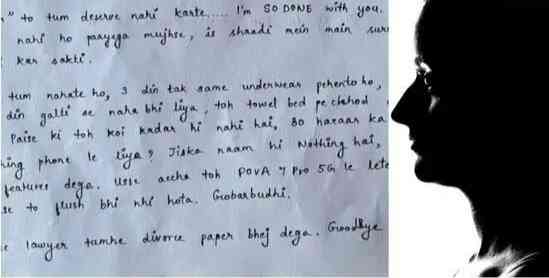 " to tum deserve nahi karte..... I'm SO DONE with you.
nahi ho payega mujhse, is shaadi mein main
kar sakti.
tum nahate ho, 3 din tak same underwear pehente ho,
din galti se naha bhi liya, toh towel bed pe chhod
Paise ki toh koi kadar hi nahi hai, 80 hazaar ka
hing phone le liya? Jiska naam hi Nothing hai,
features dega. Usse accha toh POVA 7 Pro 5G le lete
se to flush bhi nhi hota. Gobarbudhi.
lawyer tumhe divorce paper bhej dega. Goodbye